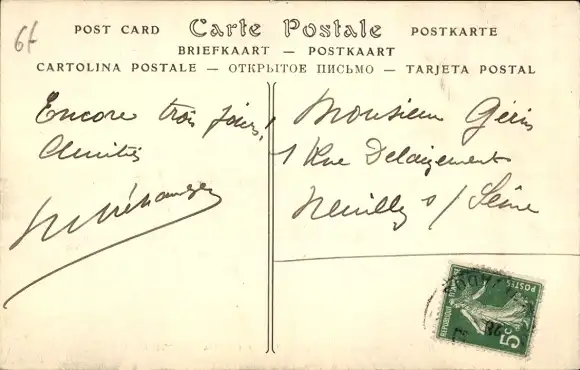 6f
POST CARD Carte Postale POSTKARTE
BRIEFKAART — POSTKAART
CARTOLINA POSTALE — ОТКРЫТОЕ ПИСЬМО — TARJETA POSTAL
Encore trois jours!
Amitiés
Monsieur Géris
1 Rue Delaizement
Neuilly s/ Seine
REPUBLIQUE FRANÇAISE
POSTES
5c